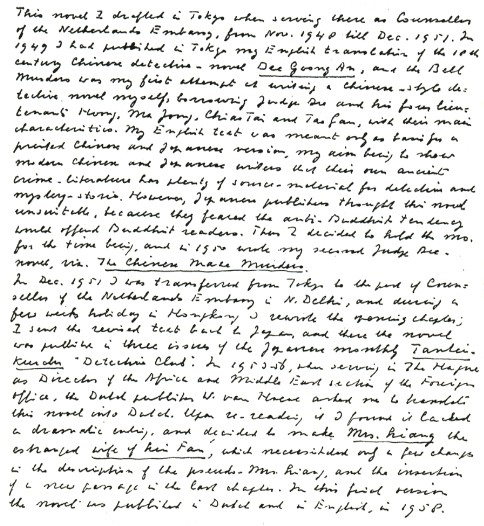 This novel I drafted in Tokyo when serving there as Counsellor
of the Netherlands Embassy, from Nov. 1948 till Dec. 1951. In
1949 I had published in Tokyo my English translation of the 18th
century Chinese detective-novel Dee Goong An, and the Bell
Murders was my first attempt at writing a Chinese-style de-
tective novel myself, borrowing Judge Dee and his four lieu-
tenants Hoong, Ma Joong, Chiao Tai and Tao Gan, with their main
characteristics. My English text was meant only as basis for a
printed Chinese and Japanese version, my aim being to show
modern Chinese and Japanese writers that their own ancient
crime-literature has plenty of source-material for detective and
mystery-stories. However, Japanese publishers thought this novel
unsuitable, because they feared the anti-Buddhist tendency
would offend Buddhist readers. Thus I decided to hold the ms.
for the time being, and in 1950 wrote my second Judge Dee-
novel, viz. The Chinese Maze Murders.
In Dec. 1951 I was transferred from Tokyo to the post of Coun-
sellor of the Netherlands Embassy in N. Delhi, and during a
few weeks holiday in Hongkong, I rewrote the opening chapter;
I sent the revised text back to Japan, and there the novel
was published in three issues of the Japanese monthly Tantei-
Kurabu "Detective Club". In 1953-56, when serving in The Hague
as Director of the Africa and Middle East section of the Foreign
Office, the Dutch publisher W. van Hoeve asked me to translate
this novel into Dutch. Upon re-reading it I found it lacked
a dramatic ending, and decided to make Mrs. Liang the
estranged wife of Lin Fan, which necessitated only a few changes
in the description of the pseudo-Mrs. Liang, and the insertion
of a new passage in the last chapter. In this final version
the novel was published in Dutch and in English, in 1958.